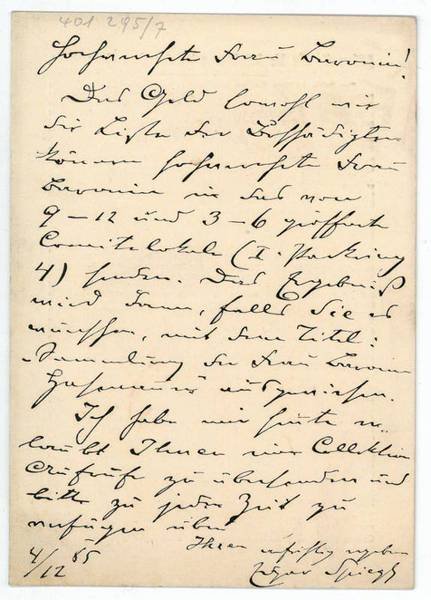 401 295/7
Hochverehrte Frau Baronin!
Das Geld sowohl wie
die Liste der Beschädigten
können hochverehrte Frau
Baronin in das von
9 – 12 und 3 – 6 geöffnete
Comitélokale (I. Parkring
4) senden. Das Ergebniß
wird dann, falls Sie es
wünschen, mit dem Titel:
„Sammlung der Frau Baronin
ausgewiesen.
Ich habe mir heute er-
laubt Ihnen einer Collektion
Aufrufe zu übersenden und
bitte zu jeder Zeit zu
verfügen über
Ihren aufrichtig ergeben
4/12 85 Edgar Spiegl